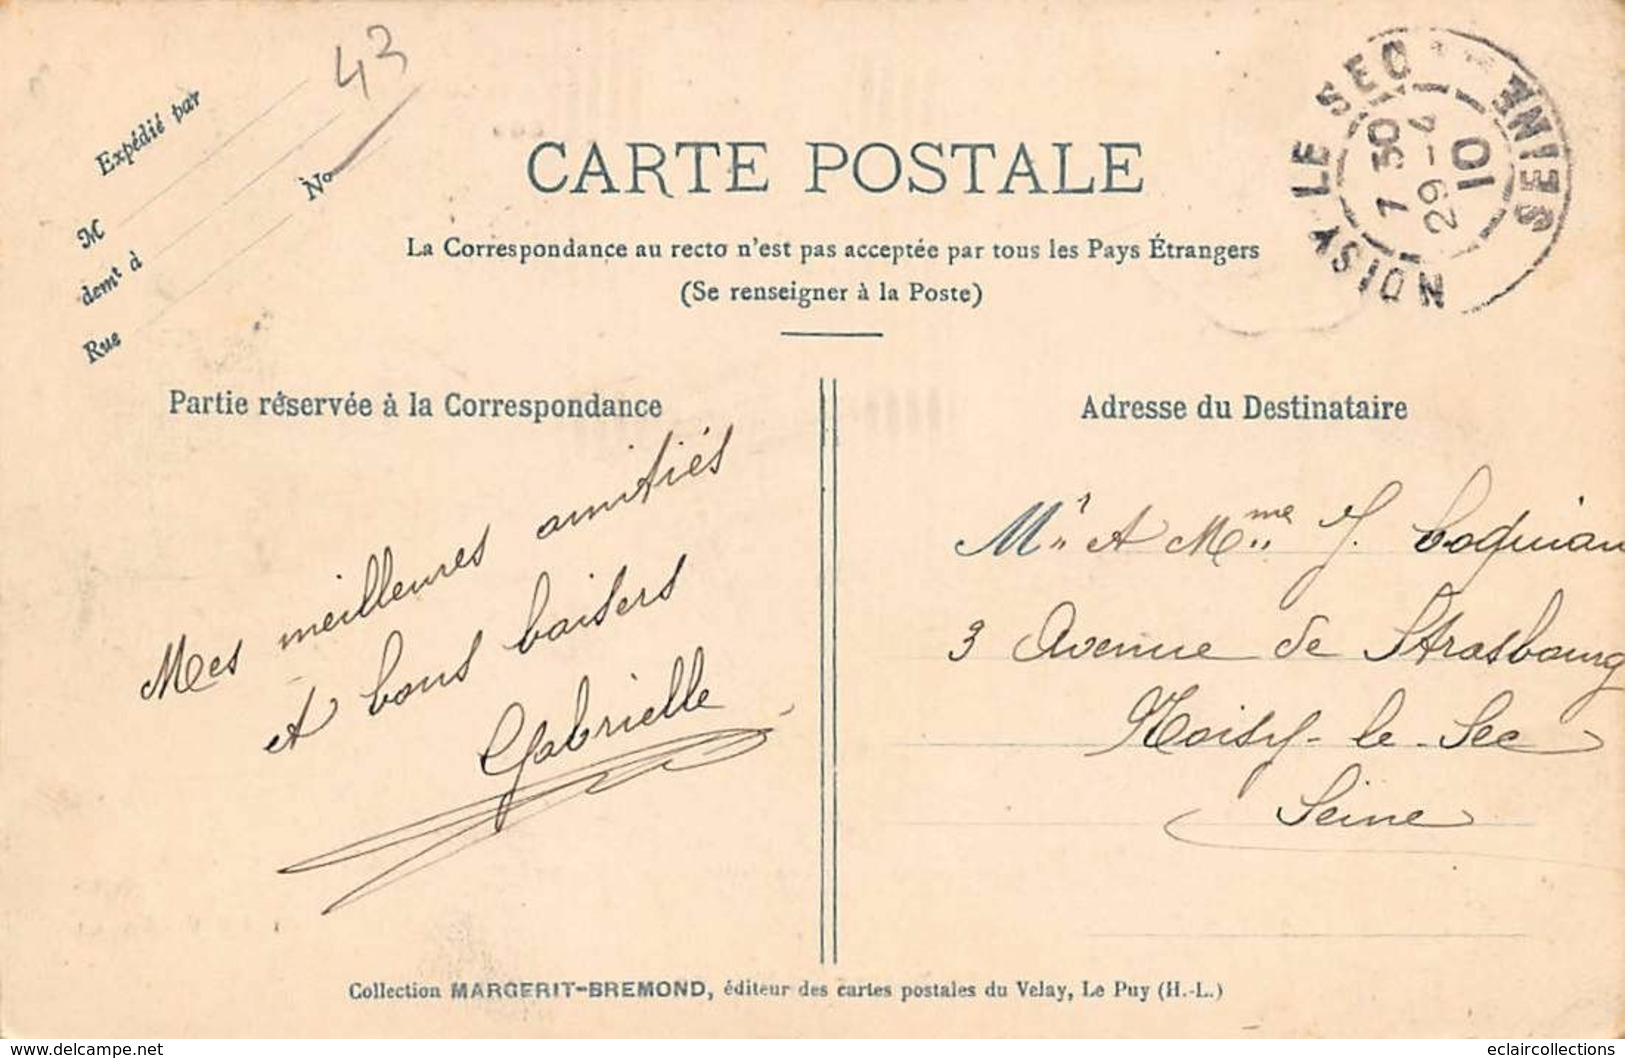 43
Expédié par
M
demt à
Rue
No
CARTE POSTALE
La Correspondance au recto n'est pas acceptée par tous les Pays Étrangers
(Se renseigner à la Poste)
NOISY LE SEC SEINE
7 30
29 - 4
10
Partie réservée à la Correspondance
Mes meilleures amitiés
et bons baisers
Gabrielle
Adresse du Destinataire
Mr et Mme J. Coquian
3 Avenue de Strasbourg
Noisy-le-Sec
Seine
Collection MARGERIT-BREMOND, éditeur des cartes postales du Velay, Le Puy (H.-L.)
www.delcampe.net
eclaircollections